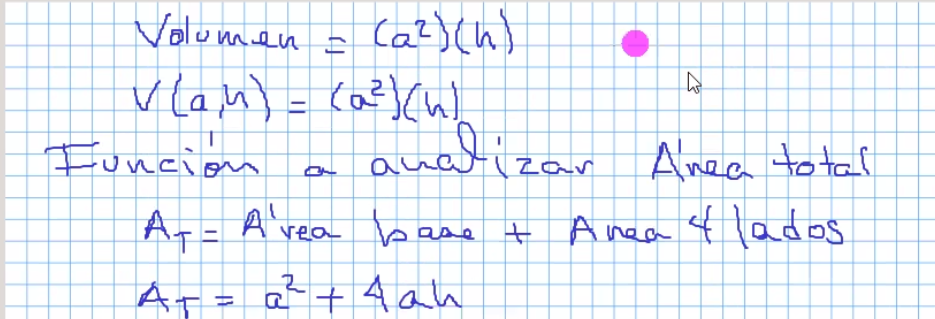 Volumen = (a²)(h)
V(a,h) = (a²)(h)
Función a analizar Área total
A_T = Área base + Area 4 lados
A_T = a² + 4ah